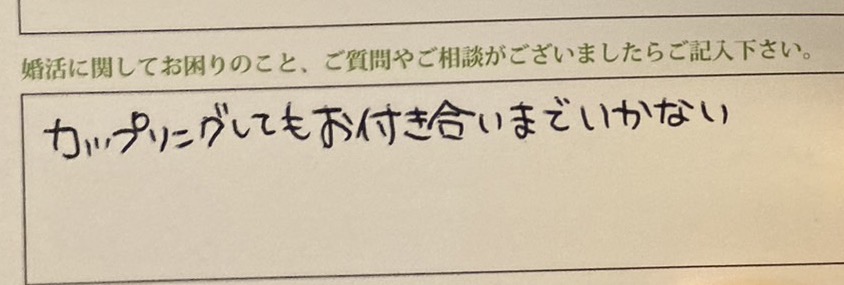 婚活に関してお困りのこと、ご質問やご相談がございましたらご記入下さい。
カップリングしてもお付き合いまでいかない